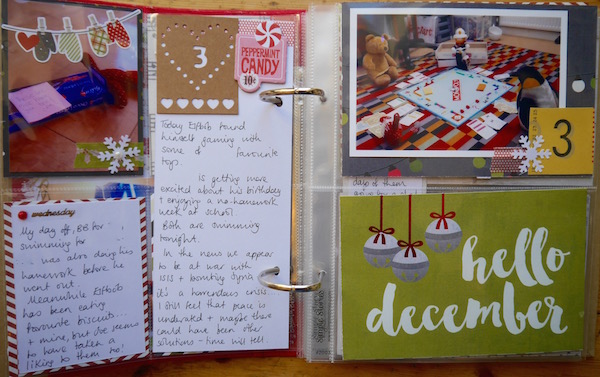 3
PEPPERMINT
CANDY
10¢
Today Elfbob found
himself gaming with
some of favourite
toys.
is getting more
excited about his birthday
+ enjoying a no-homework
week at school
Both are swimming
tonight.
In the news we appear
to be at war with
ISIS + bombing Syria
it's a horrendous crisis
I still feel that peace is
underrated + maybe there
could have been other
solutions - time will tell.
wednesday
My day off, BB for
swimming for
was also doing his
homework before he
went out.
Meanwhile Elfbob
has been eating
favourite biscuits...
+ mine, but I've seems
to have taken a
liking to them too!
MONOPOLY
3
days of them
hello
december